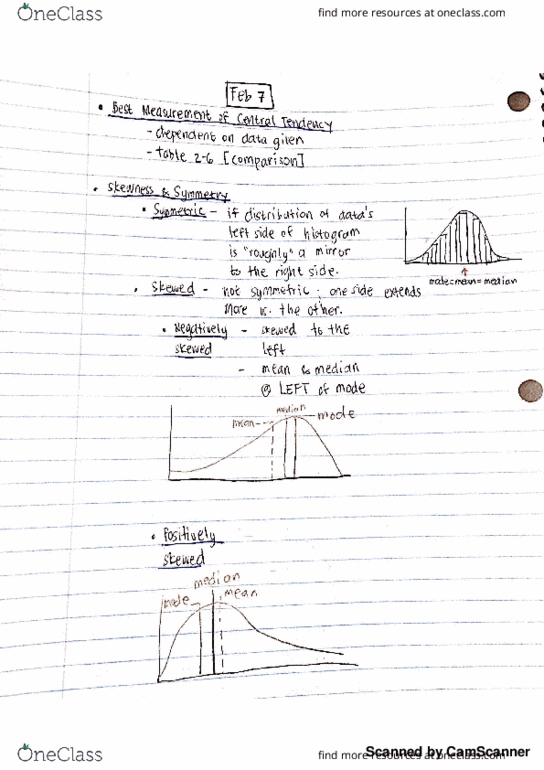 OneClass
find more resources at oneclass.com
Feb 7
• Best Measurement of Central Tendency
- dependent on data given
- table 2-6 [comparison]
• Skewness & Symmetry
• Symetric - if distribution of data's
left side of histogram
is "roughly" a mirror
to the right side.
mode=mean=median
• Skewed - not symmetric; one side extends
more vs. the other.
• Negatively - skewed to the
skewed left
- mean & median
@ LEFT of mode
mean median mode
• Positively
skewed
median
mode mean
OneClass
find more resources at oneclass.com
Scanned by CamScanner